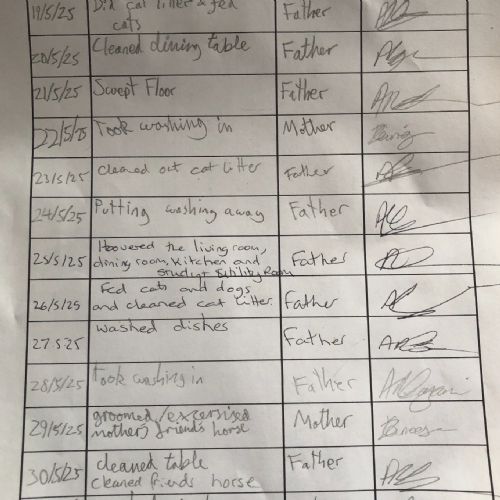 19/5/25 Did cat litter & fed Father
cats
20/5/25 Cleaned dining table Father
21/5/25 Swept Floor Father
22/5/25 Took washing in Mother
23/5/25 cleaned out cat litter Father
24/5/25 Putting washing away Father
25/5/25 Hoovered the living room, Father
dining room, kitchen and
utility Room
26/5/25 Fed cats and dogs Father
and cleaned cat litter.
27.5.25 washed dishes Father
28/5/25 Took washing in Father
29/5/25 groomed/excersised Mother
mothers friends horse
30/5/25 cleaned table Father
cleaned friends horse